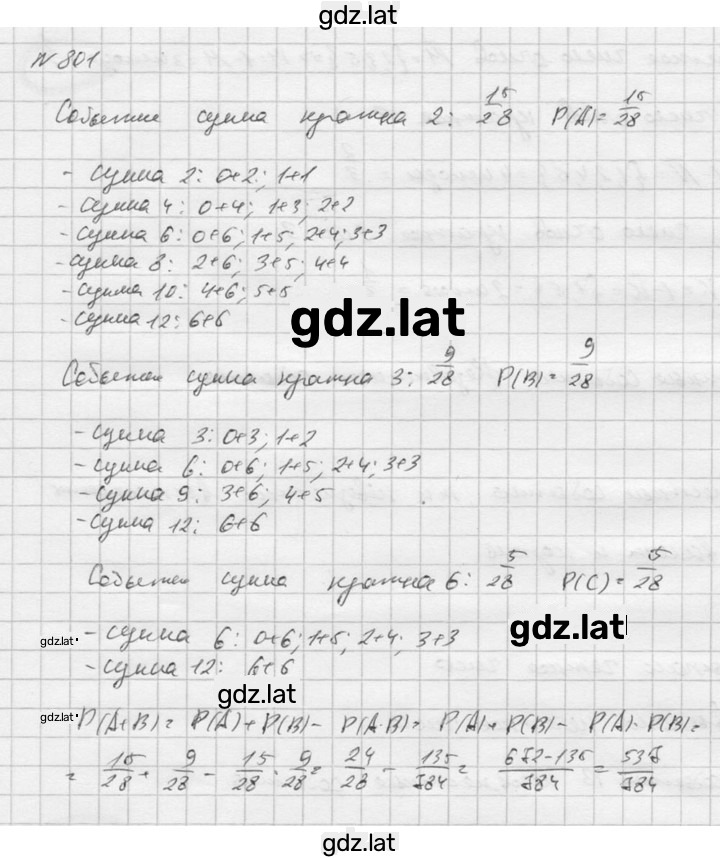 gdz.lat
N 801
Событие сумма кратна 2: 15/28 P(A)= 15/28
- сумма 2: 0+2; 1+1
- сумма 4: 0+4; 1+3; 2+2
- сумма 6: 0+6; 1+5; 2+4; 3+3
- сумма 8: 2+6; 3+5; 4+4
- сумма 10: 4+6; 5+5
- сумма 12: 6+6
gdz.lat
Событие сумма кратна 3: 9/28 P(B)= 9/28
- сумма 3: 0+3; 1+2
- сумма 6: 0+6; 1+5; 2+4; 3+3
- сумма 9: 3+6; 4+5
- сумма 12: 6+6
Событие сумма кратна 6: 5/28 P(C)= 5/28
gdz.lat
gdz.lat
- сумма 6: 0+6; 1+5; 2+4; 3+3
- сумма 12: 6+6
gdz.lat
gdz.lat
P(A+B)= P(A)+P(B)- P(A·B)= P(A)+P(B)- P(A)·P(B)=
= 15/28 + 9/28 - 15/28 · 9/28 = 24/28 - 135/784 = 672-135/784 = 537/784
gdz.lat